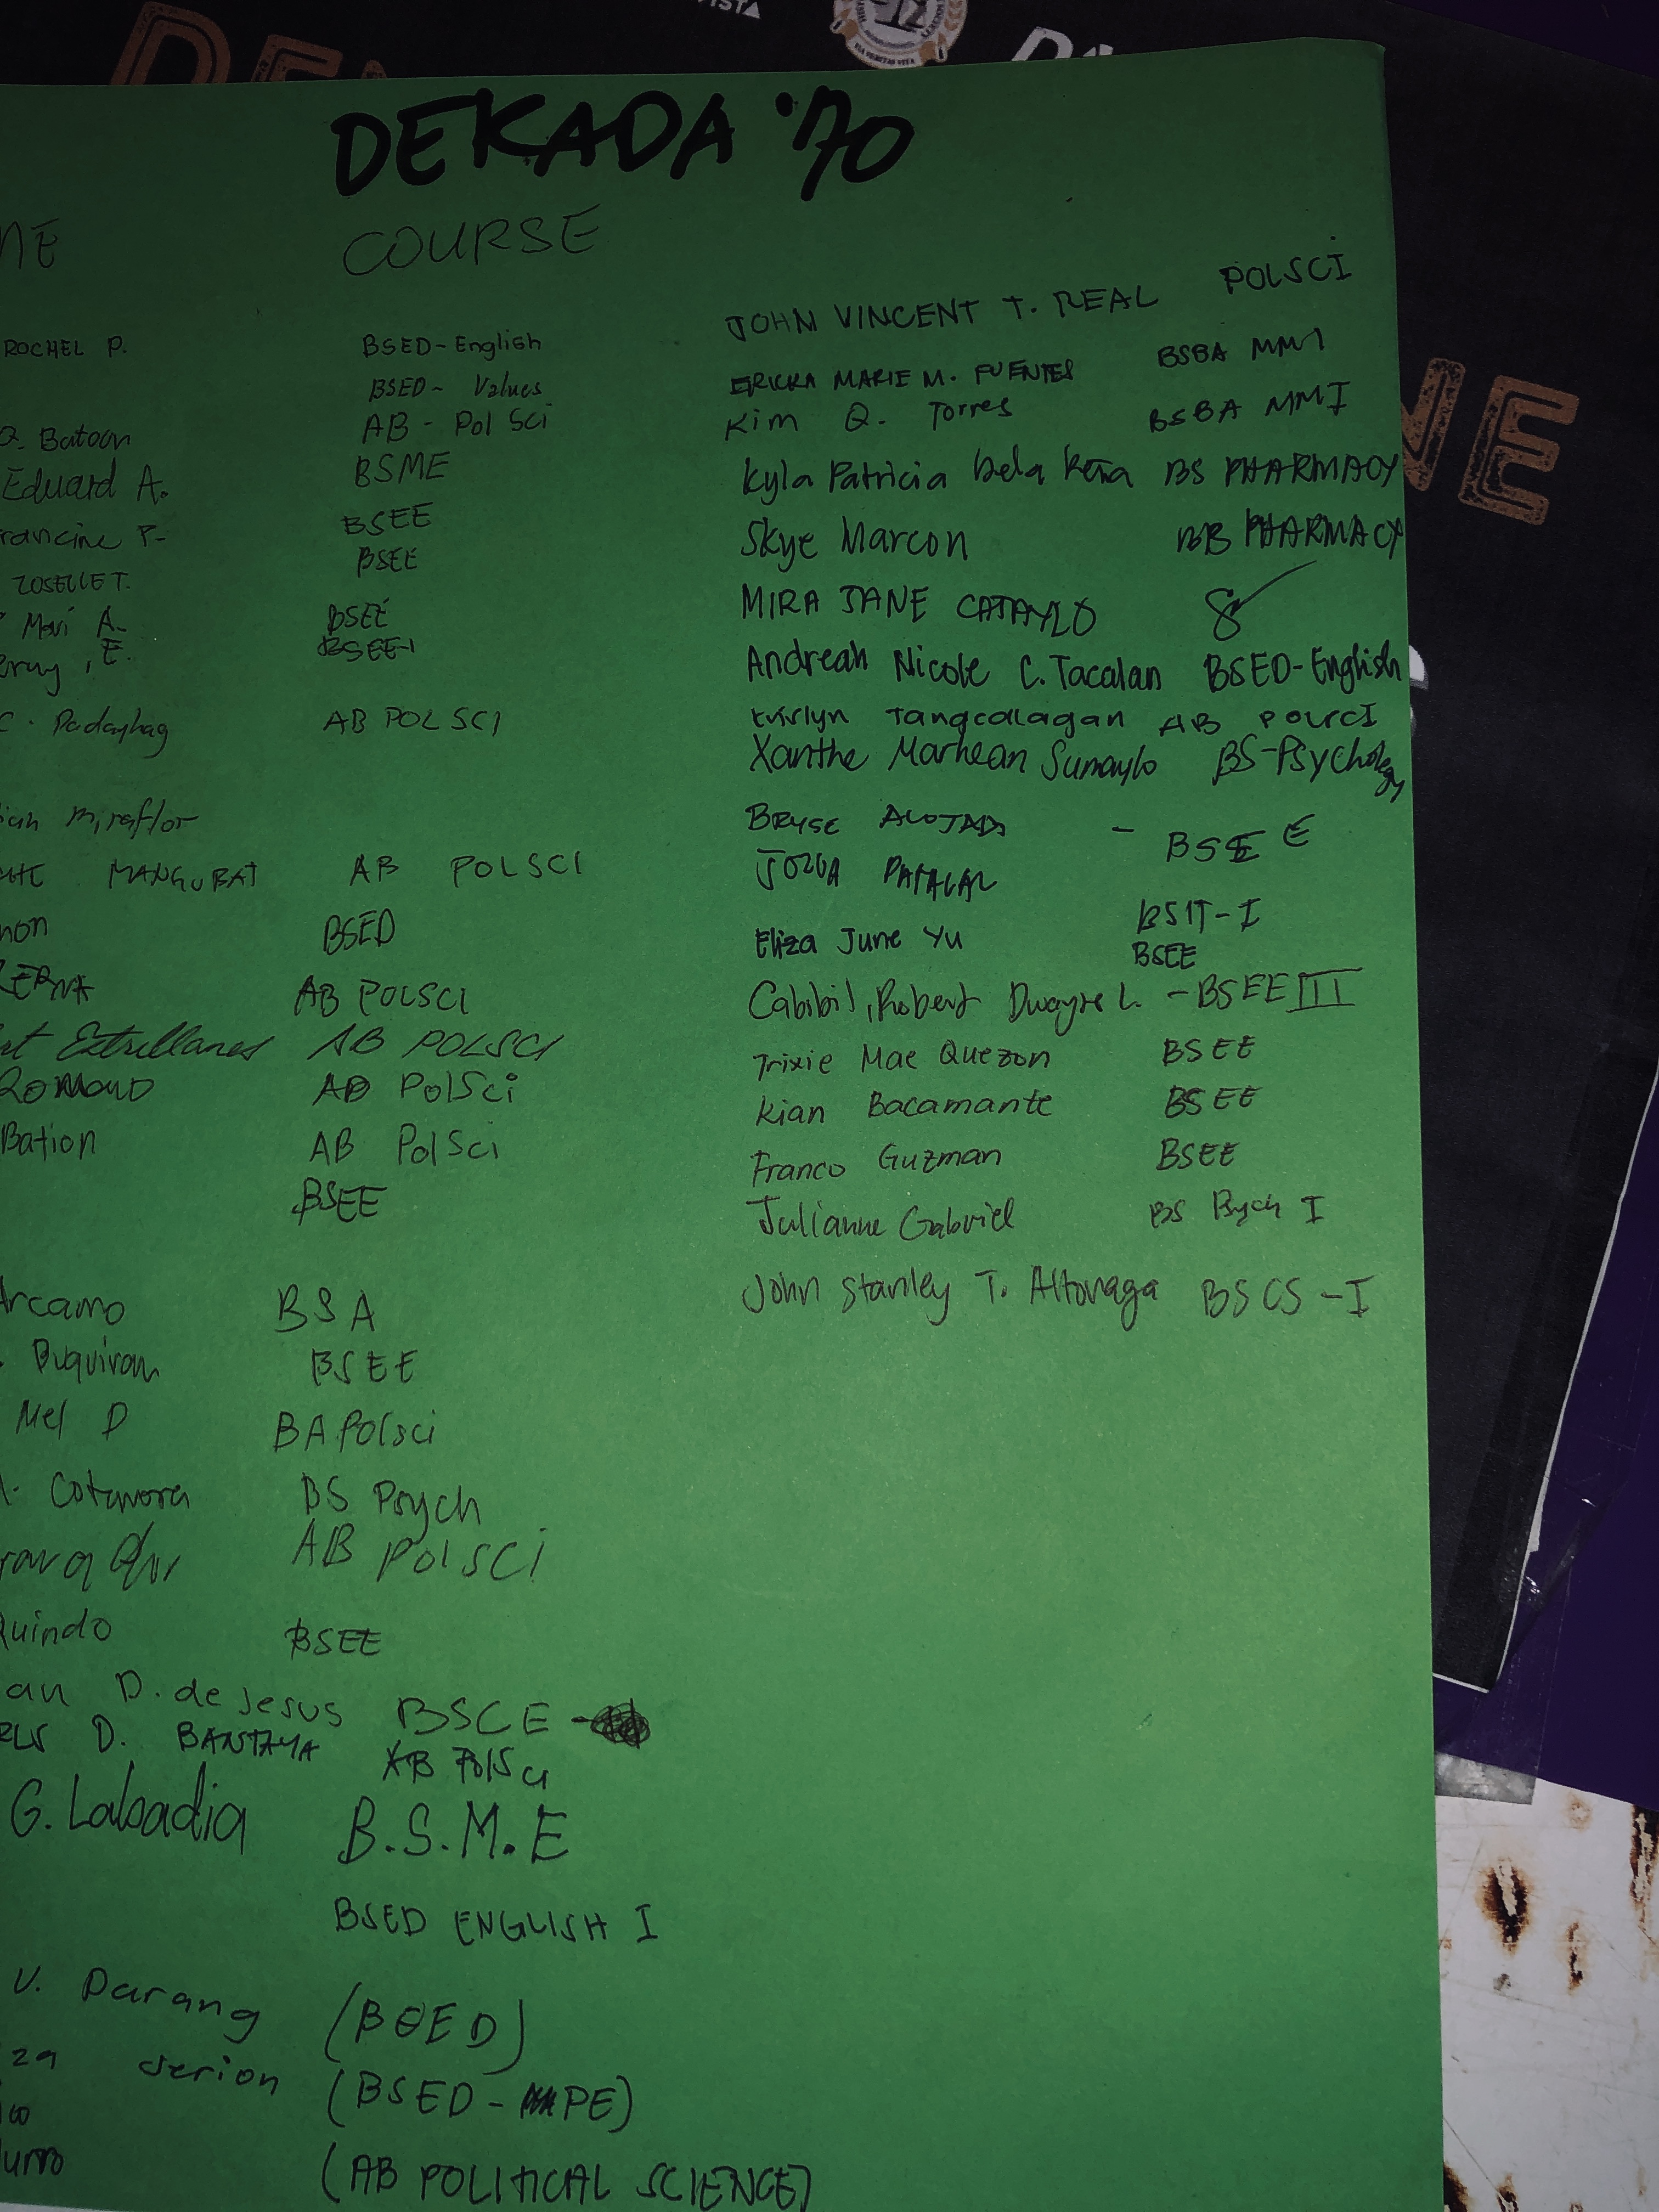 VIA VERITAS VITA
DEKADA '70
COURSE
ROCHEL P. BSED-English
BSED- Values
Q. Batoon AB - Pol Sci
Eduard A. BSME
rancine P- BSEE
BSEE
Mari A. BSEE
E. BSEE-1
C. Padayhag AB POLSCI
Miraflor
MANGUBAT AB POLSCI
non BSED
AB POLSCI
Estrellanes AB POLSCI
Romano AB PolSci
Bation AB PolSci
BSEE
Arcamo BSA
Buquiran BSEE
Mel D BA Polsci
Cotamora BS Psych
AB POLSCI
Quindo BSEE
an D. de Jesus BSCE -
D. BANTAYA AB PolSci
G. Labadia B.S.M.E
BSED ENGLISH I
V. Darang (BEED)
za Serion (BSED-PE)
(AB POLITICAL SCIENCE)
JOHN VINCENT T. REAL POLSCI
ERICKA MARIE M. FUENTES BSBA MM1
Kim Q. Torres BSBA MMI
Kyla Patricia Dela Peña BS PHARMACY
Skye Marcon BS PHARMACY
MIRA JANE CATAYLO
Andreah Nicole C. Tacalan BSED-English
Evirlyn Tangcalagan AB POLSCI
Xanthe Marhean Sumaylo BS-Psychology
BRYSE ALOJADO - BSEE
JOZUA PATACAN
BSIT-I
Eliza June Yu BSEE
Cabibil, Robert Dwayne L. - BSEE III
Trixie Mae Quezon BSEE
Kian Bacamante BSEE
Franco Guzman BSEE
Julianne Gabriel BS Psych I
John Stanley T. Altonaga BSCS - I